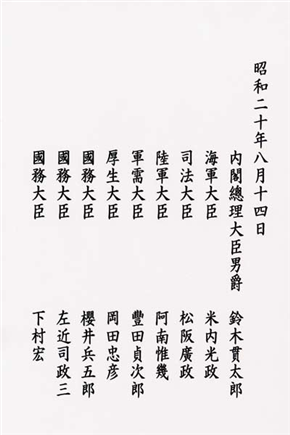 昭和二十年八月十四日
內閣總理大臣男爵 鈴木貫太郎
海軍大臣 米内光政
司法大臣 松阪廣政
陸軍大臣 阿南惟幾
軍需大臣 豐田貞次郎
厚生大臣 岡田忠彦
國務大臣 櫻井兵五郎
國務大臣 左近司政三
國務大臣 下村宏